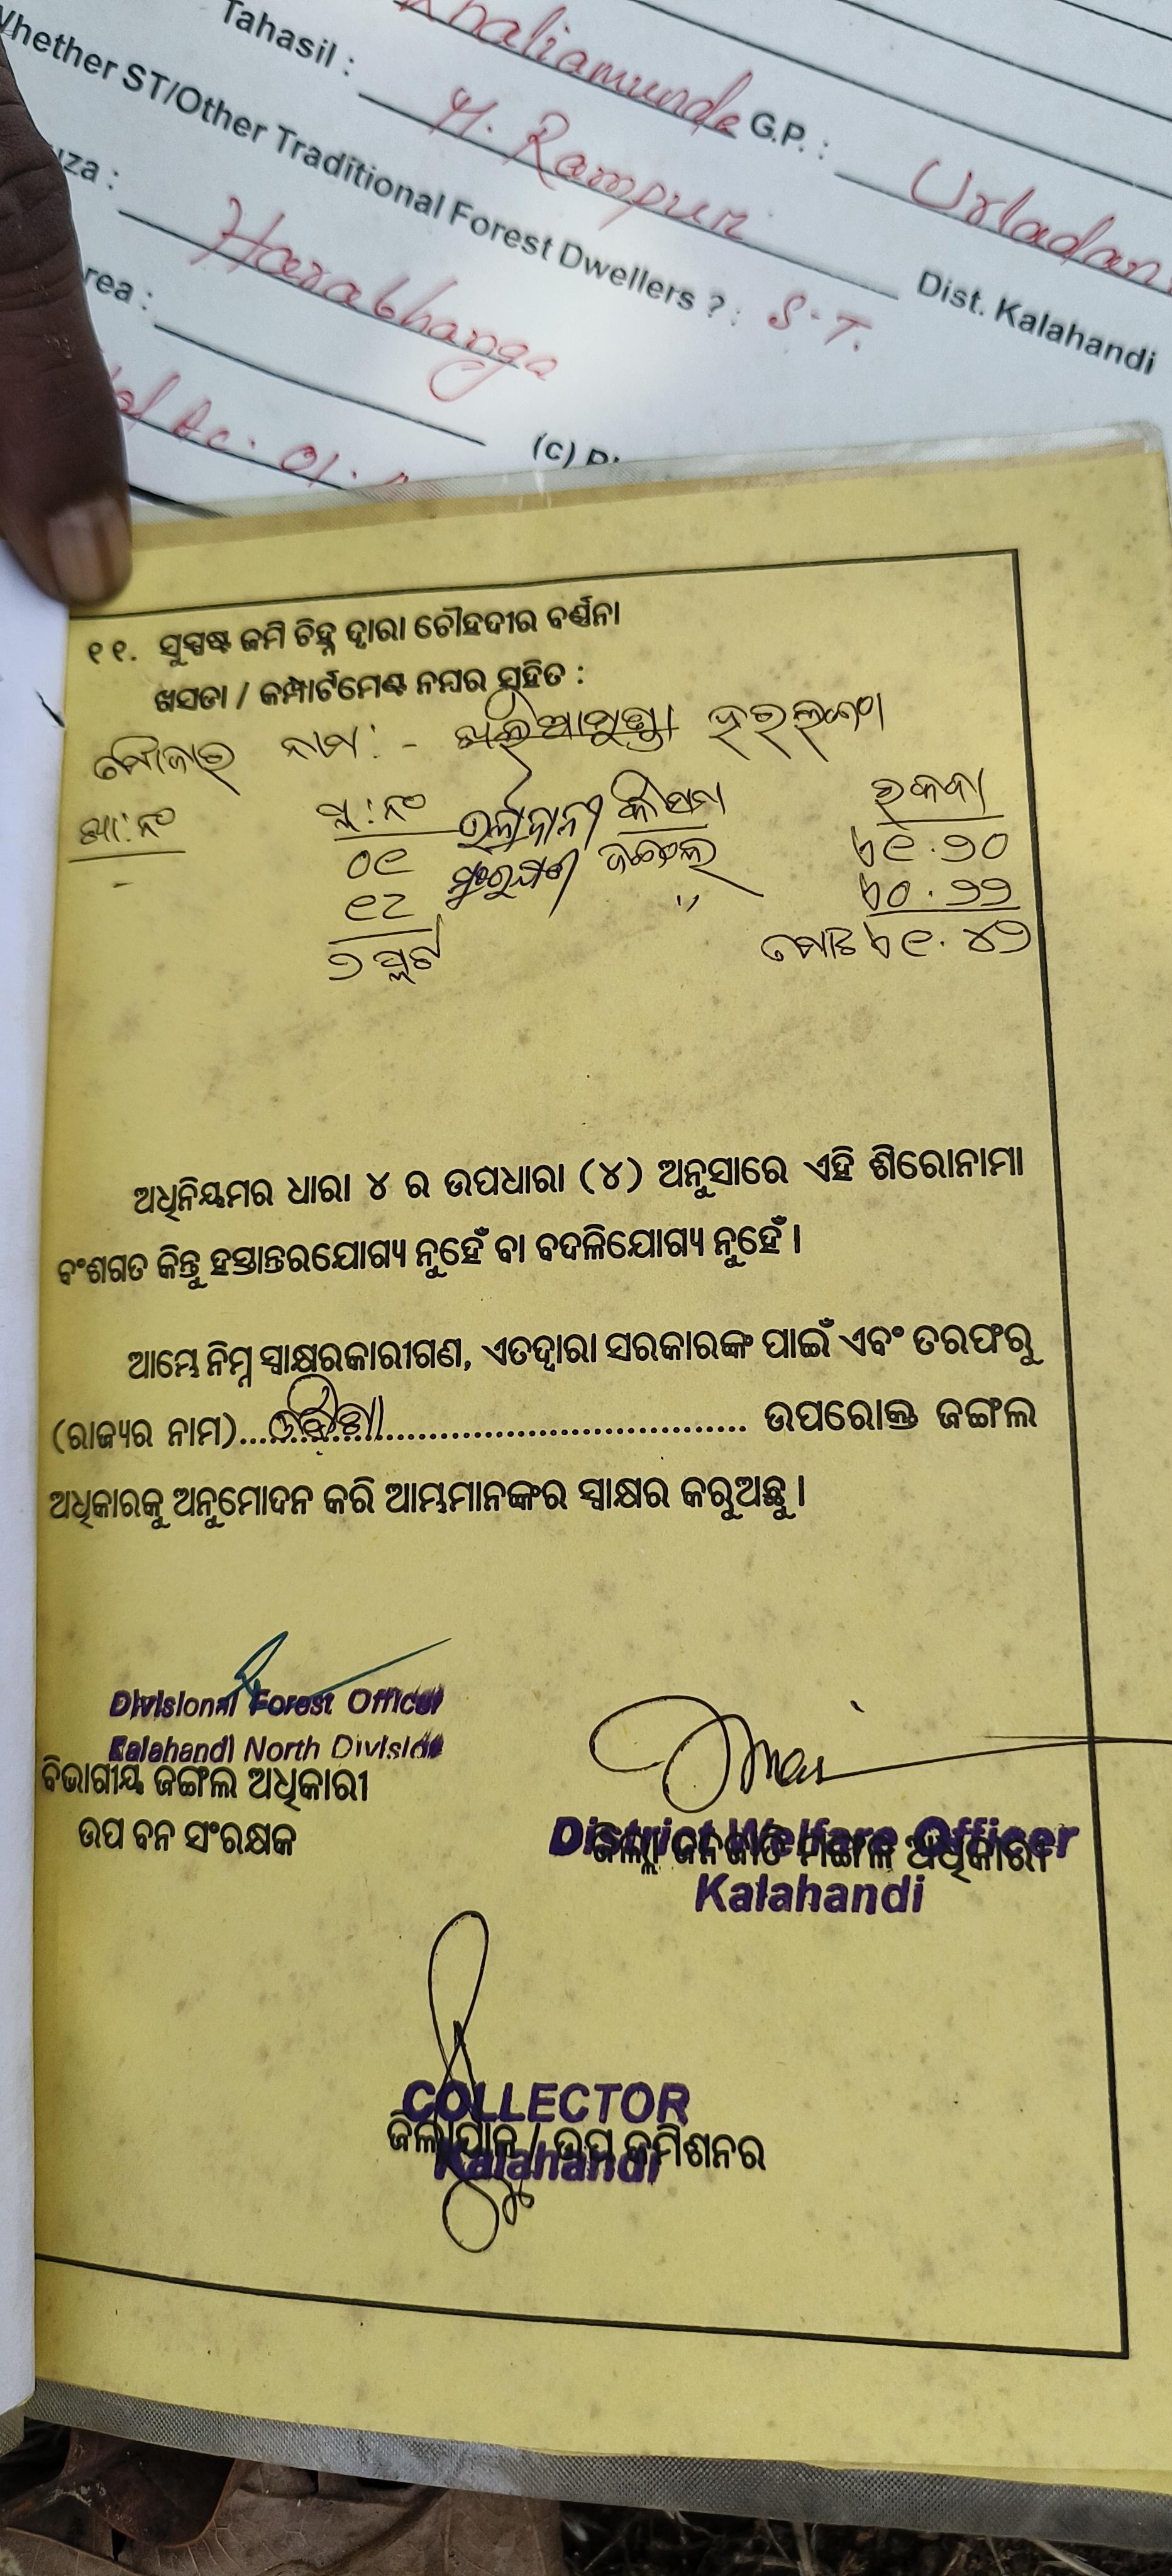 Khaliamunda G.P. : Urladani
Tahasil : M. Rampur Dist. Kalahandi
Whether ST/Other Traditional Forest Dwellers ? : S.T.
uza : Harabhanga
rea :
Ac. 01.
(c)
୧୧. ସୁସ୍ପଷ୍ଟ ଜମି ଚିହ୍ନ ଦ୍ୱାରା ଚୌହଦୀର ବର୍ଣ୍ଣନା
ଖସଡା / କମ୍ପାର୍ଟମେଣ୍ଟ ନମ୍ବର ସହିତ :
ମୌଜାର ନାମ :-
ଖା:ନଂ ପ୍ଲ:ନଂ କିସମ ରକବା
୦୧ ଏ ୧.୨୦
- ୧୮ " ଏ ୦.୨୨
୨ ପ୍ଲଟ ମୋଟ ଏ ୧.୪୨
ଅଧିନିୟମର ଧାରା ୪ ର ଉପଧାରା (୪) ଅନୁସାରେ ଏହି ଶିରୋନାମା
ବଂଶଗତ କିନ୍ତୁ ହସ୍ତାନ୍ତରଯୋଗ୍ୟ ନୁହେଁ ବା ବଦଳିଯୋଗ୍ୟ ନୁହେଁ ।
ଆମ୍ଭେ ନିମ୍ନ ସ୍ୱାକ୍ଷରକାରୀଗଣ, ଏତଦ୍ୱାରା ସରକାରଙ୍କ ପାଇଁ ଏବଂ ତରଫରୁ
(ରାଜ୍ୟର ନାମ)...ଓଡ଼ିଶା... ଉପରୋକ୍ତ ଜଙ୍ଗଲ
ଅଧିକାରକୁ ଅନୁମୋଦନ କରି ଆମ୍ଭମାନଙ୍କର ସ୍ୱାକ୍ଷର କରୁଅଛୁ ।
Divisional Forest Officer
Kalahandi North Division
ବିଭାଗୀୟ ଜଙ୍ଗଲ ଅଧିକାରୀ
ଉପ ବନ ସଂରକ୍ଷକ
District Welfare Officer
ଜିଲ୍ଲା ଜନଜାତି ମଙ୍ଗଳ ଅଧିକାରୀ
Kalahandi
COLLECTOR
ଜିଲ୍ଲାପାଳ / ଉପ କମିଶନର
Kalahandi